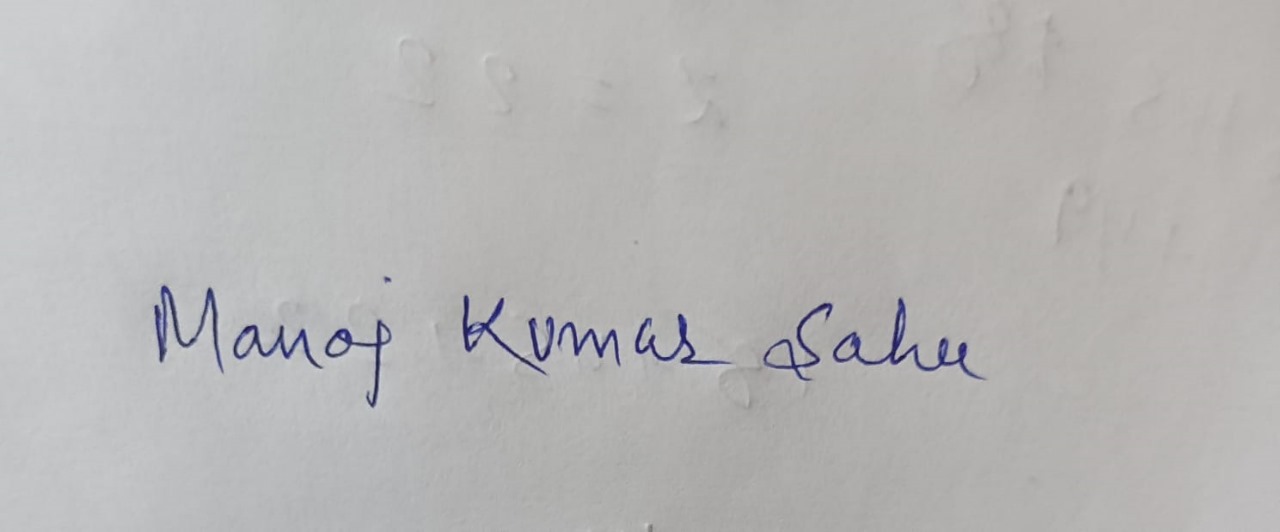 Manoj Kumar Sahu